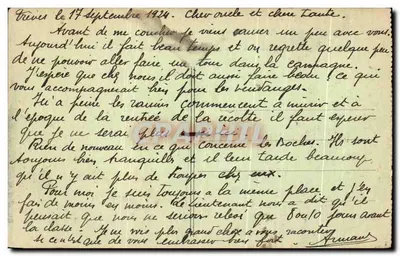 Trèves le 17 Septembre 1924. Cher oncle et chère Tante.
Avant de me coucher je viens causer un peu avec vous.
Aujourd'hui il fait beau temps et on regrette quelque peu
de ne pouvoir aller faire un tour dans la campagne.
J'espère que chez nous il doit aussi faire beau, ce qui
vous accompagnerait bien pour les vendanges.
Ici a peine les raisins commencent à murir et à
l'époque de la rentrée de la recolte il faut esperer
que je ne serai plus
Rien de nouveau en ce qui concerne les Boches. Ils sont
toujours bien tranquilles et il leur tarde beaucoup
qu'il n'y ait plus de troupes chez eux.
Pour moi je suis toujours a la même place et j'en
fais de moins en moins. Le lieutenant nous a dit qu'il
pensait que nous ne serions relevés que 8 ou 10 jours avant
la classe. Je ne vois plus grand chose a vous raconter
si ce n'est que de vous embrasser bien fort. Armand